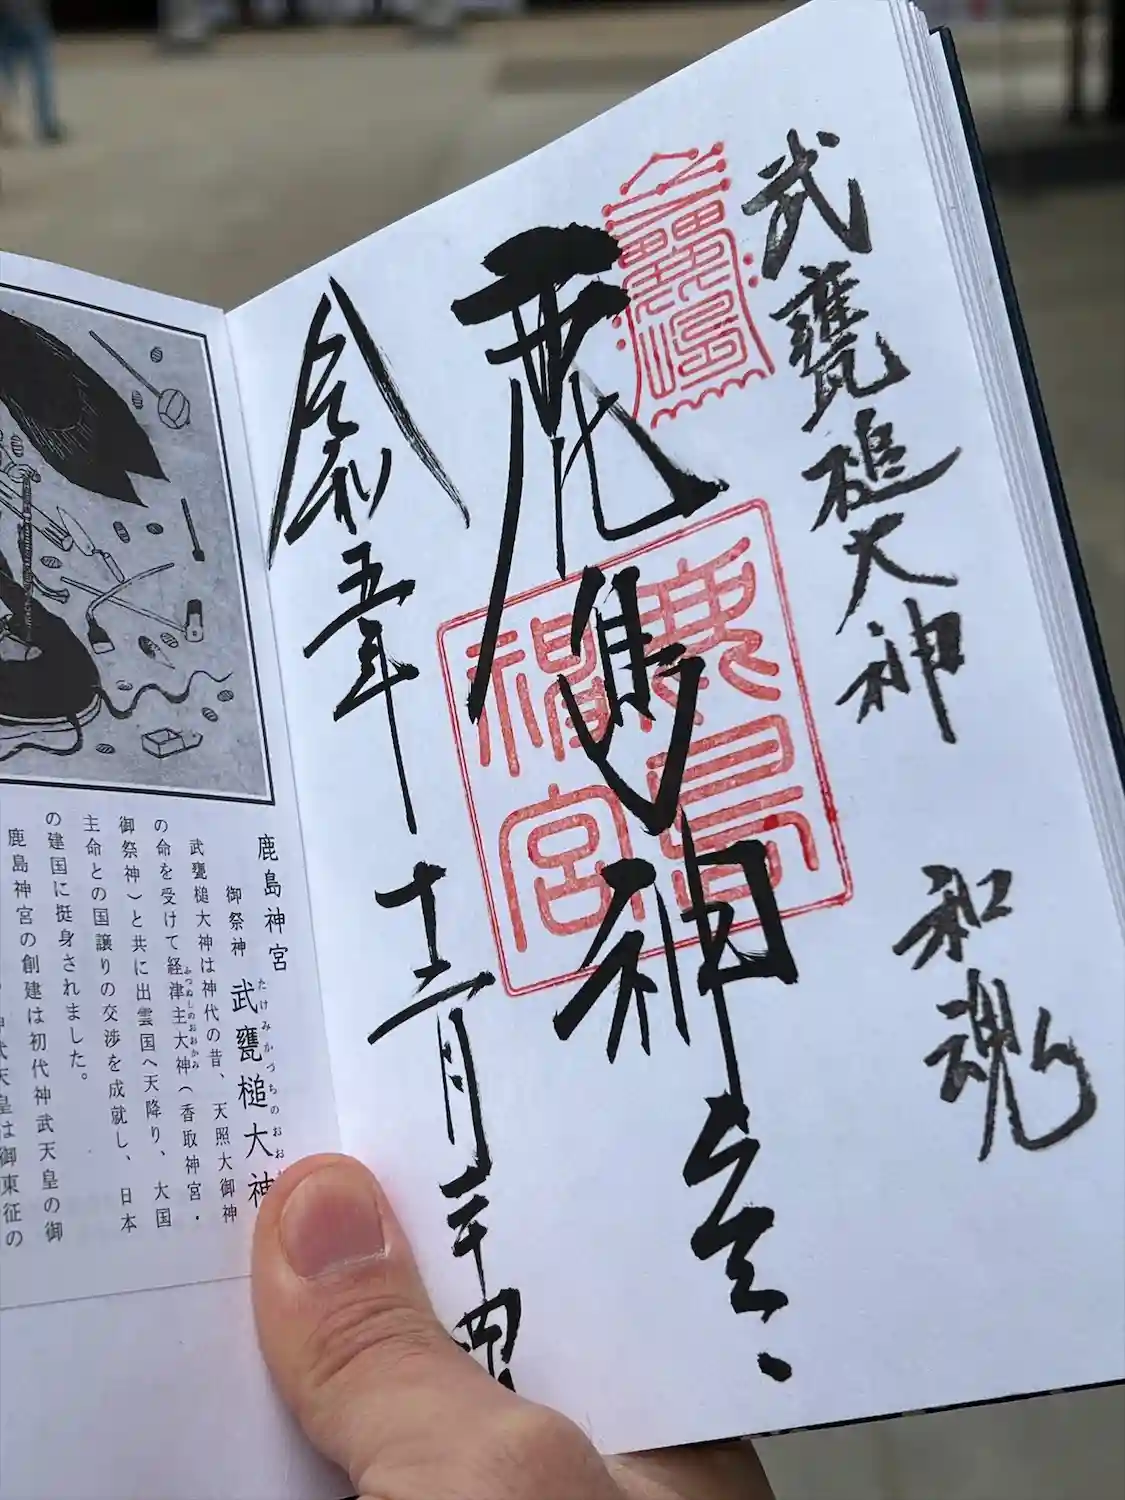 武甕槌大神 和魂
鹿島神宮
鹿島神宮
令和五年十二月二十四日
鹿島神宮
御祭神 武甕槌大神
たけみかづちのおお
武甕槌大神は神代の昔、天照大御神
の命を受けて経津主大神(香取神宮・
ふつぬしのおおかみ
御祭神)と共に出雲国へ天降り、大国
主命との国譲りの交渉を成就し、日本
の建国に挺身されました。
鹿島神宮の創建は初代神武天皇の御
武天皇は御東征の